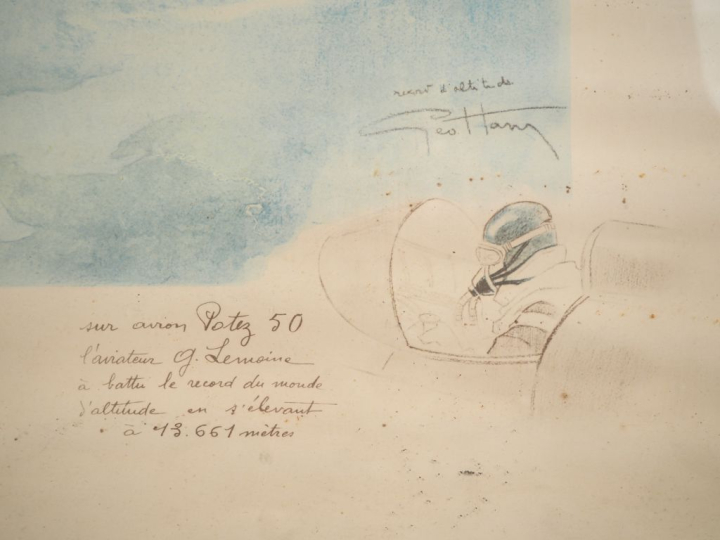 record d'altitude
Geo Ham
sur avion Potez 50
l'aviateur G. Lemoine
à battu le record du monde
d'altitude en s'élevant
à 13.661 mètres